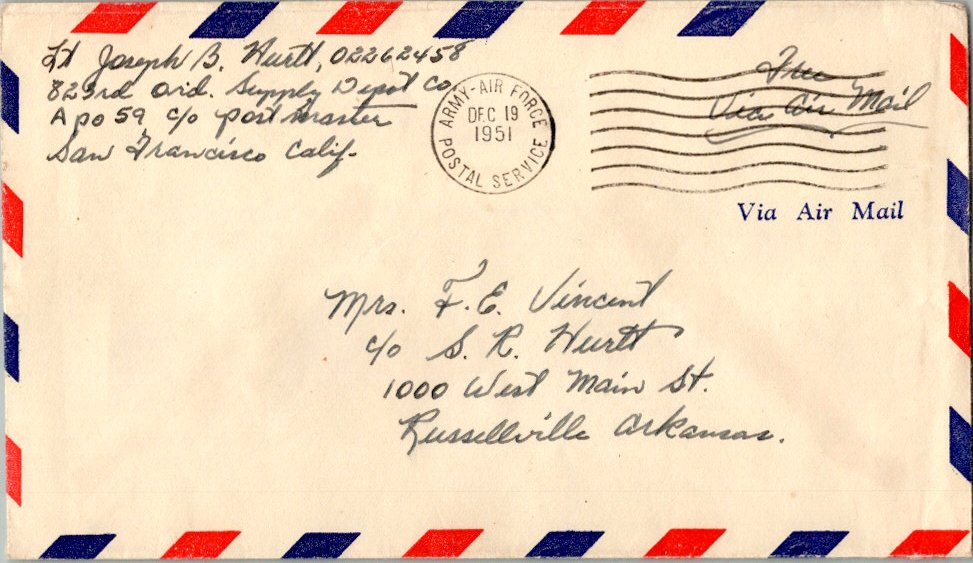 Lt Joseph B. Hurtt, 02262458
823rd Ord. Supply Depot Co
Apo 59 c/o postmaster
San Francisco Calif.
ARMY-AIR FORCE
DEC 19
1951
POSTAL SERVICE
Free
Via Air Mail
Via Air Mail
Mrs. F. E. Vincent
c/o S. R. Hurtt
1000 West Main St.
Russellville Arkansas.